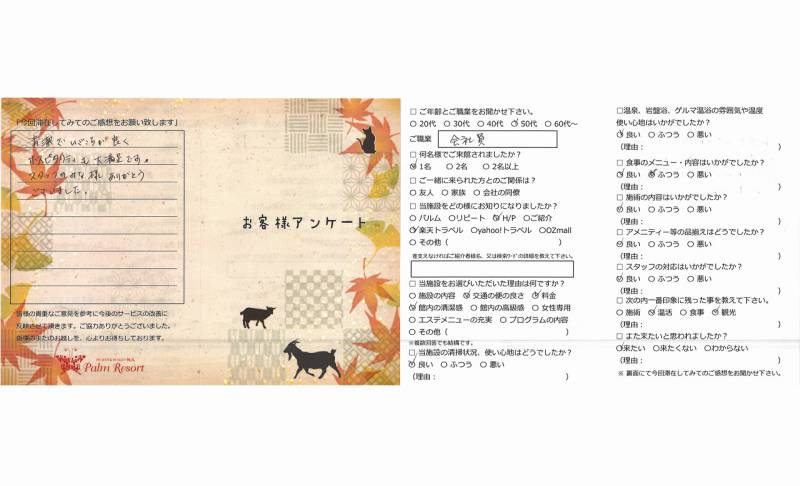 「今回滞在してみてのご感想をお願い致します」
清潔でいごこちが良く
ホスピタリティも大満足です。
スタッフのみな様ありがとう
ございました。
お客様アンケート
皆様の貴重なご意見を参考に今後のサービスの改善に
反映させて頂きます。ご協力ありがとうございました。
皆様のまたのお越しを、心よりお待ちしております。
Palm Resort
□ ご年齢とご職業をお聞かせ下さい。
○ 20代 ○ 30代 ○ 40代 ○ 50代 ○ 60代～
ご職業 会社員
□ 何名様でご来館されましたか？
○ 1名 ○ 2名 ○ 2名以上
□ ご一緒に来られた方とのご関係は？
○ 友人 ○ 家族 ○ 会社の同僚
□ 当施設をどの様にお知りになりましたか？
○ パルム ○リピート ○ H/P ○ご紹介
○楽天トラベル ○yahoo!トラベル ○OZmall
○ その他（ ）
差支えなければご紹介者様名、又は検索ワードの詳細を教えて下さい。
□ 当施設をお選びいただいた理由は何ですか？
○ 施設の内容 ○ 交通の便の良さ ○ 料金
○ 館内の清潔感 ○ 館内の高級感 ○ 女性専用
○ エステメニューの充実 ○ プログラムの内容
○ その他（ ）
※複数回答でも結構です。
□ 当施設の清掃状況、使い心地はどうでしたか？
○ 良い ○ ふつう ○ 悪い
（理由： ）
□温泉、岩盤浴、ゲルマ温浴の雰囲気や温度
使い心地はいかがでしたか？
○ 良い ○ ふつう ○ 悪い
（理由： ）
□ 食事のメニュー・内容はいかがでしたか？
○ 良い ○ ふつう ○ 悪い
□ 施術の内容はいかがでしたか？
○ 良い ○ ふつう ○ 悪い
（理由： ）
□ アメニティー等の品揃えはどうでしたか？
○ 良い ○ ふつう ○ 悪い
（理由： ）
□ スタッフの対応はいかがでしたか？
○ 良い ○ ふつう ○ 悪い
（理由： ）
□ 次の内一番印象に残った事を教えて下さい。
○ 施術 ○ 温活 ○ 食事 ○ 観光
□ また来たいと思われましたか？
○来たい ○来たくない ○わからない
（理由： ）
※ 裏面にて今回滞在してみてのご感想をお聞かせ下さい。